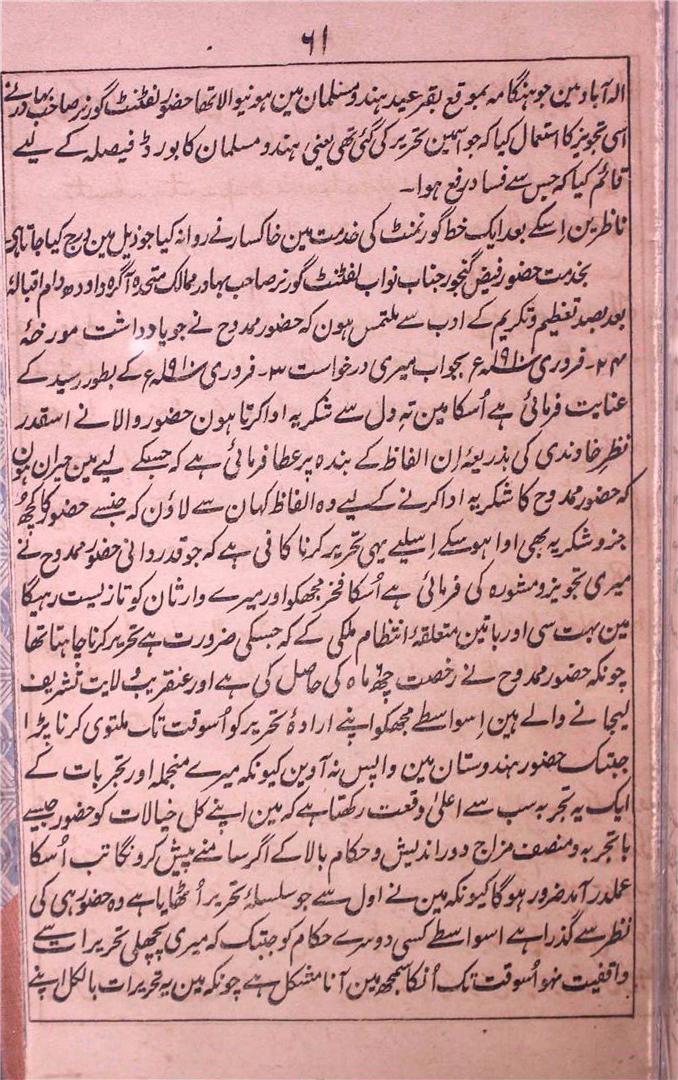 ۶۱
الہ آباد مین جو ہنگامہ بموقع بقرعید ہندو مسلمان مین ہونیوالا تھا حضور لفٹنٹ گورنر صاحب بہادر نے
اسی تجویز کا استعمال کیا کہ جو اسمین تحریر کی گئی تھی یعنی ہندو مسلمان کا بورڈ فیصلہ کے لیے
قائم کیا کہ جس سے فساد رفع ہوا۔
ناظرین اسکے بعد ایک خط گورنمنٹ کی خدمت مین خاکسار نے روانہ کیا جو ذیل مین درج کیا جاتا ہی
بخدمت حضور فیض گنجور جناب نواب لفٹنٹ گورنر صاحب بہادر ممالک متحدہ آگرہ و اودھ دام اقبالہٗ
بعد بصد تعظیم و تکریم کے ادب سے ملتمس ہون کہ حضور ممدوح نے جو یادداشت مورخہ
۲۴۔ فروری ۱۹۱۰ء بجواب میری درخواست ۳۔ فروری ۱۹۱۰ء کے بطور رسید کے
عنایت فرمائی ہے اُسکا مین تہ دل سے شکریہ ادا کرتا ہون حضور والا نے اسقدر
نظر خاوندی کی بذریعۂ اِن الفاظ کے بندہ پر عطا فرمائی ہے کہ جسکے لیے مین حیران ہون
کہ حضور ممدوح کا شکریہ ادا کرنے کے لیے وہ الفاظ کہان سے لاؤن کہ جنسے حضور کا کچھ
جزو شکریہ بھی ادا ہو سکے اسلیے یہی تحریر کرنا کافی ہے کہ جو قدردانی حضور ممدوح نے
میری تجویز و مشورہ کی فرمائی ہے اُسکا فخر مجھکو اور میرے وارثان کو تا زیست رہیگا
مین بہت سی اور باتین متعلقۂ انتظام ملکی کے کہ جسکی ضرورت ہے تحریر کرنا چاہتا تھا
چونکہ حضور ممدوح نے رخصت چھ ماہ کی حاصل کی ہے اور عنقریب ولایت تشریف
لیجانے والے ہین اِسواسطے مجھکو اپنے ارادۂ تحریر کو اُسوقت تک ملتوی کرنا پڑا
جبتک حضور ہندوستان مین واپس نہ آوین کیونکہ میرے منجملہ اور تجربات کے
ایک یہ تجربہ سب سے اعلیٰ وقعت رکھتا ہے کہ مین اپنے کل خیالات کو حضور جیسے
باتجربہ و منصف مزاج دور اندیش و حکام بالا کے اگر سامنے پیش کرونگا تب اُسکا
عملدرآمد ضرور ہوگا کیونکہ مین نے اول سے جو سلسلۂ تحریر اُٹھایا ہے وہ حضور ہی کی
نظر سے گذرا ہے اسواسطے کسی دوسرے حکام کو جبتک کہ میری پچھلی تحریرات سے
واقفیت نہو اُسوقت تک اُنکا سمجھ مین آنا مشکل ہے چونکہ مین یہ تحریرات بالکل اپنے